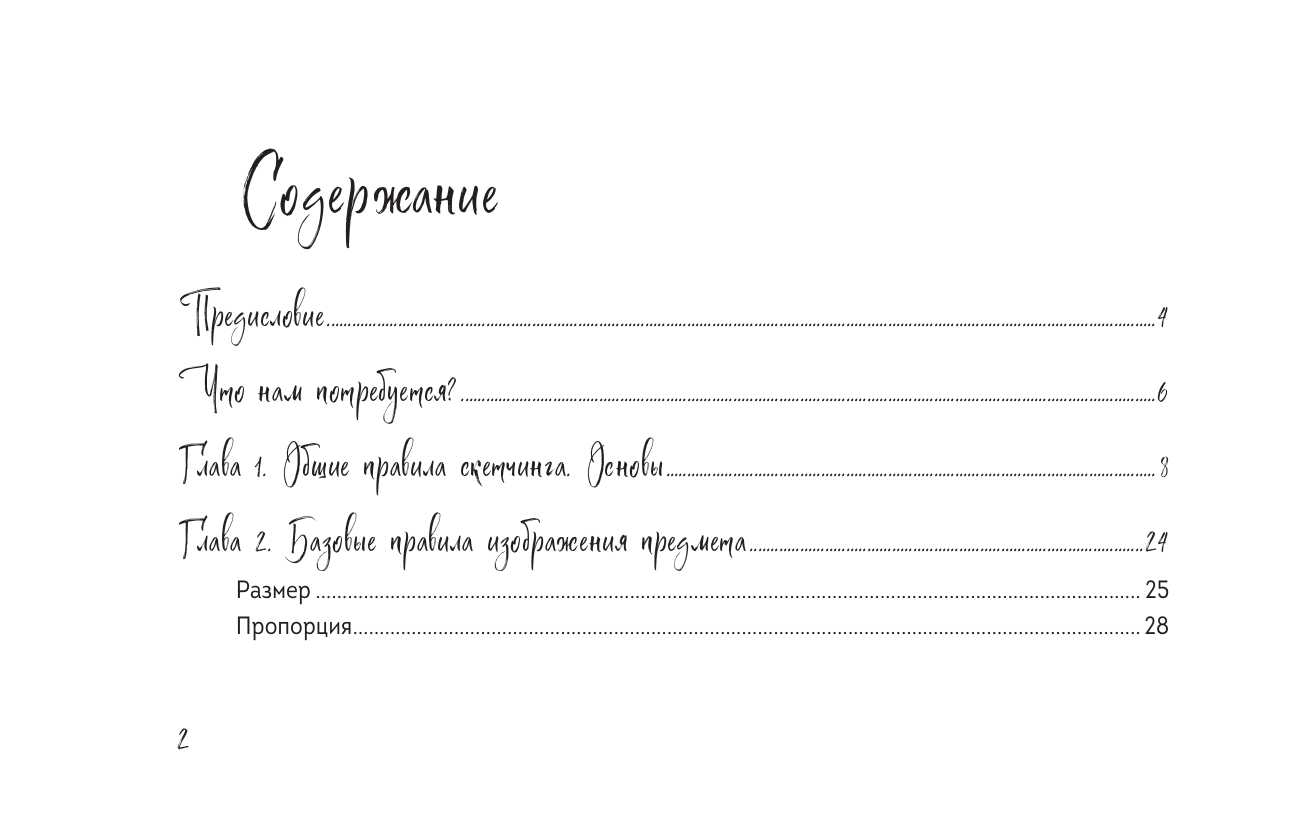 Содержание
Предисловие 4
Что нам потребуется? 6
Глава 1. Общие правила скетчинга. Основы 8
Глава 2. Базовые правила изображения предмета 24
Размер 25
Пропорция 28
2